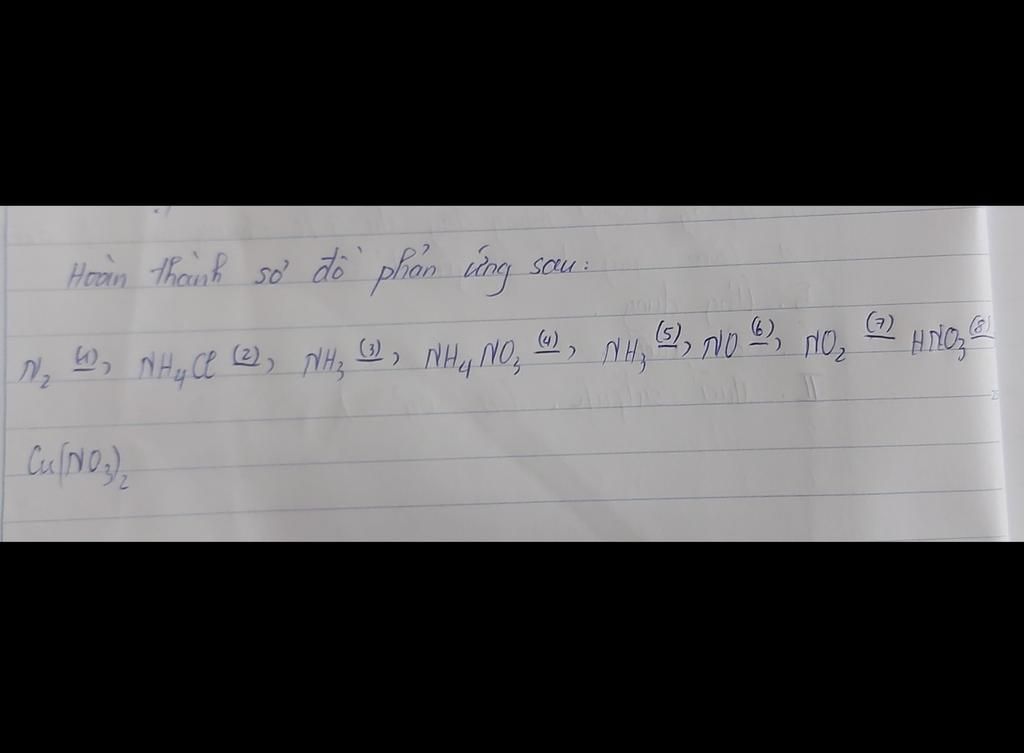 Hoàn thành sơ đồ phản ứng sau:
N₂ (1)→ NH₄Cl (2)→ NH₃ (3)→ NH₄NO₃ (4)→ NH₃ (5)→ NO (6)→ NO₂ (7)— HNO₃ (8)—
Cu(NO₃)₂